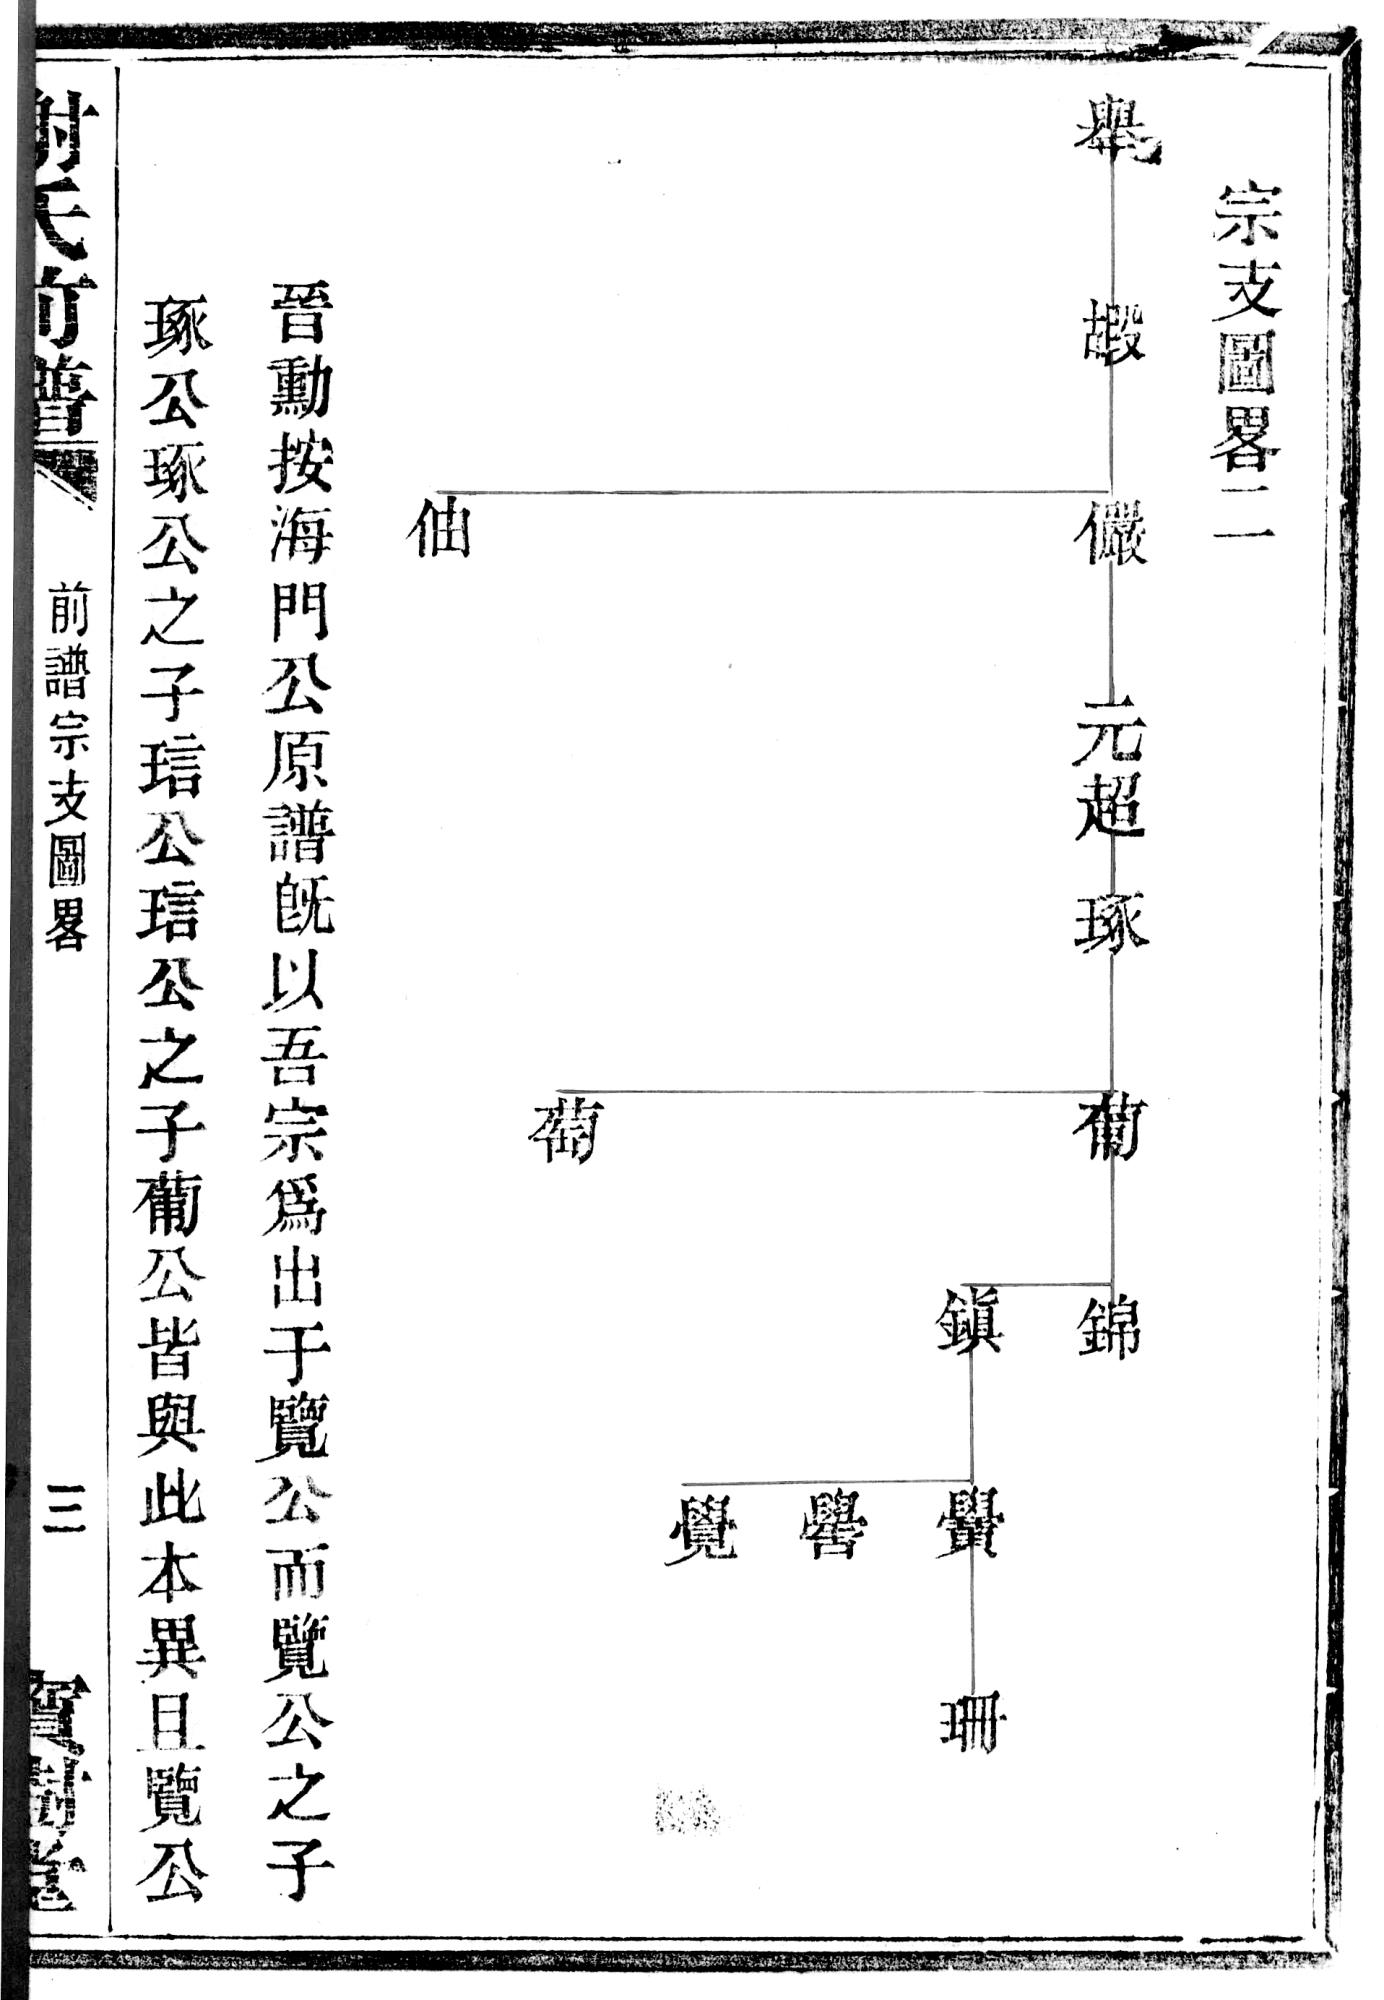 宗支圖畧二
舉
嘏
儼
伷
元超
琢
葡
萄
錦
鎮
黌
嚳
覺
珊
晉勳按海門公原譜旣以吾宗爲出于覽公而覽公之子
琢公琢公之子琂公琂公之子葡公皆與此本異且覽公
謝氏前譜
前譜宗支圖畧
三
寶樹堂